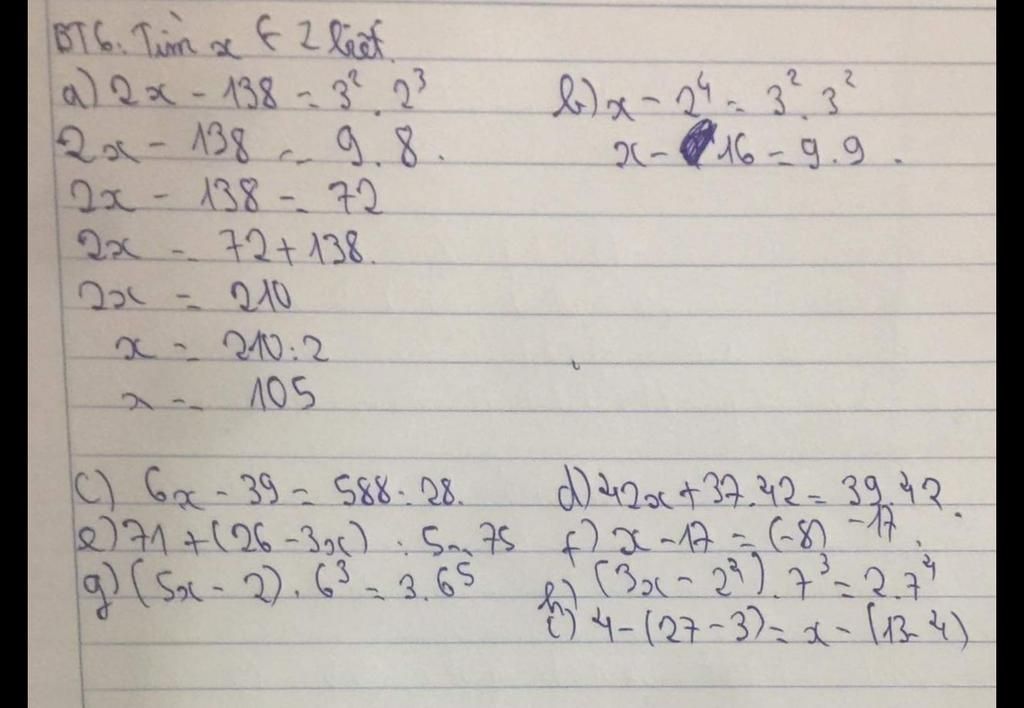 BT6. Tìm x ∈ Z biết.
a) 2x - 138 = 3² . 2³
2x - 138 = 9 . 8 .
2x - 138 = 72
2x = 72 + 138.
2x = 210
x = 210 : 2
x = 105
b) x - 2⁴ = 3² . 3²
x - 16 = 9 . 9 .
c) 6x - 39 = 588 : 28.
d) 42x + 37.42 = 39.42.
e) 71 + (26 - 3x) : 5 = 75
f) x - 17 = (-8) - 17.
g) (5x - 2) . 6³ = 3 . 6⁵
h) (3x - 2⁴) . 7³ = 2 . 7⁴
i) 4 - (27 - 3) = x - (13 - 4)